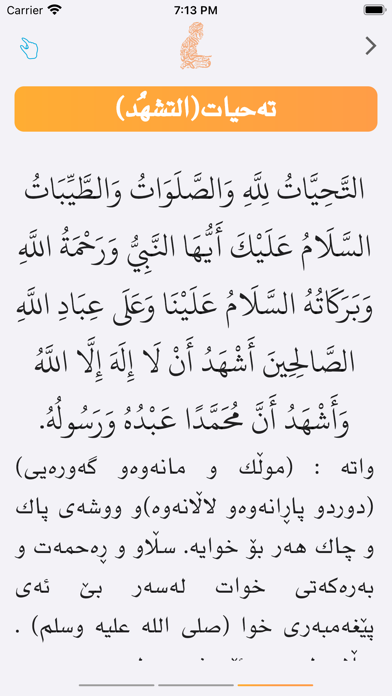 Carrier 7:13 PM
تەحیات(التشهُد)
التَّحِيَّاتُ لِلَّهِ وَالصَّلَوَاتُ وَالطَّيِّبَاتُ
السَّلَامُ عَلَيْكَ أَيُّهَا النَّبِيُّ وَرَحْمَةُ اللَّهِ
وَبَرَكَاتُهُ السَّلَامُ عَلَيْنَا وَعَلَى عِبَادِ اللَّهِ
الصَّالِحِينَ أَشْهَدُ أَنْ لَا إِلَهَ إِلَّا اللَّهُ
وَأَشْهَدُ أَنَّ مُحَمَّدًا عَبْدُهُ وَرَسُولُهُ.
واتە : (موڵك و مانەوەو گەورەیی)
(دوردو پاڕانەوەو لاڵانەوە)و ووشەی پاك
و چاك هەر بۆ خوایە. سڵاو و ڕەحمەت و
بەرەكەتی خوات لەسەر بێ ئەی
پێغەمبەری خوا (صلى الله عليه وسلم) .